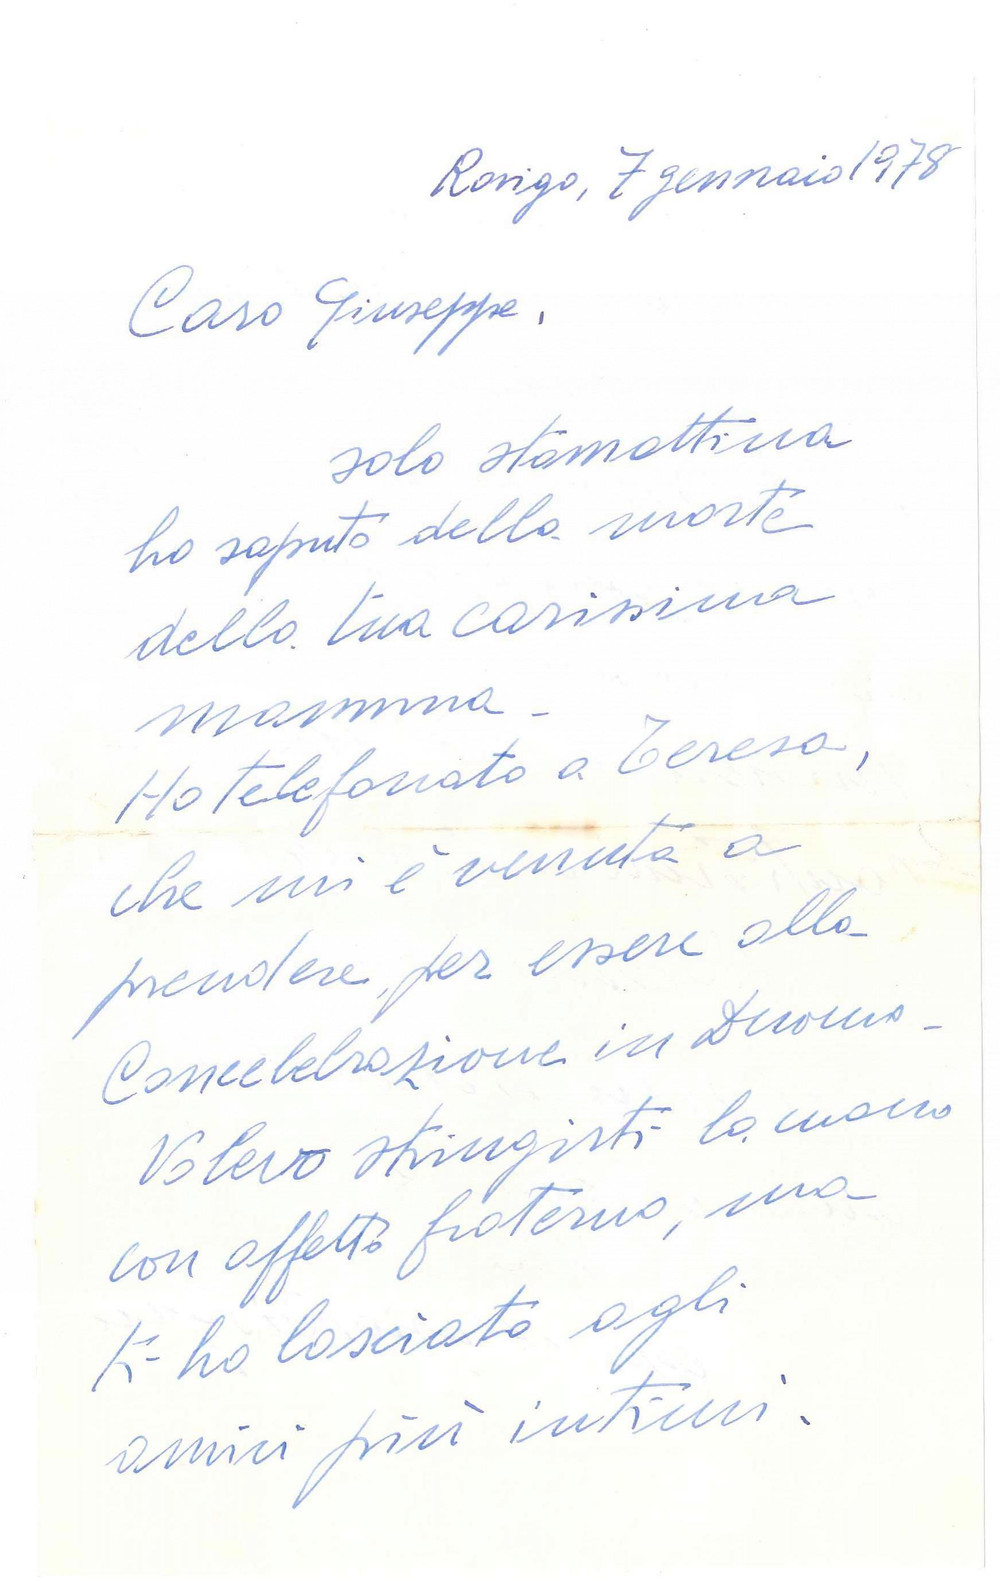 Rovigo, 7 gennaio 1978
Caro Giuseppe,
solo stamattina
ho saputo della morte
della tua carissima
mamma -
Ho telefonato a Teresa,
che mi è venuta a
prendere, per essere alla
Concelebrazione in Duomo -
Volevo stringerti la mano
con affetto fraterno, ma
ti ho lasciato agli
amici più intimi.